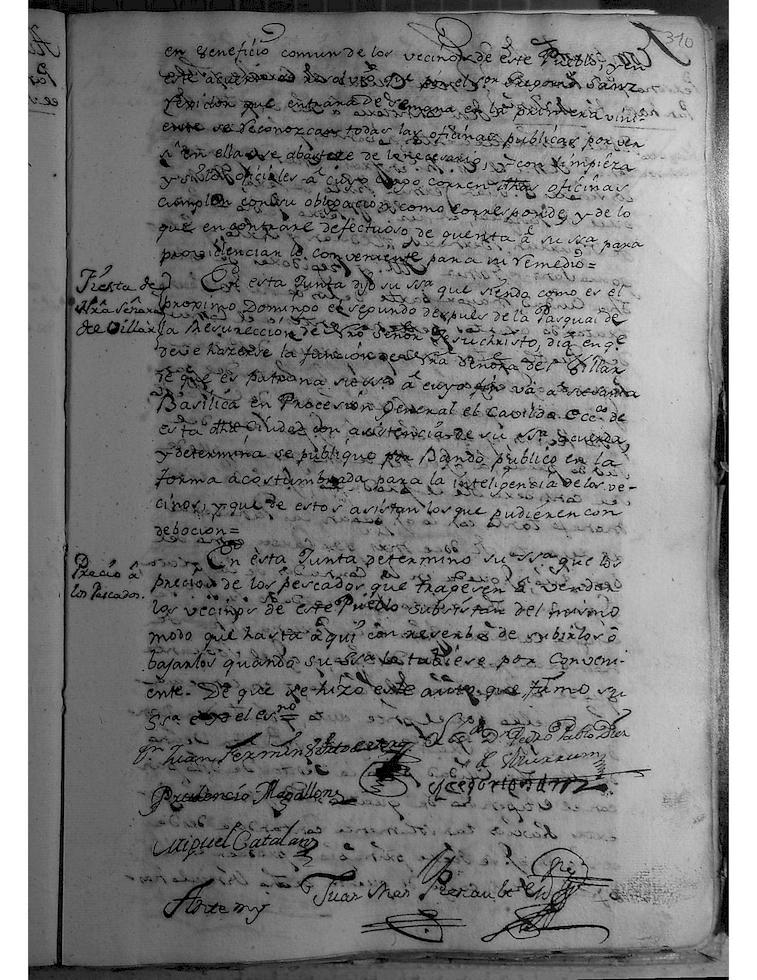 310
en beneficio comun de los vecinos de este Pueblo, y en
este por el Sor Gregorio Sanz
rexidor que entrara de semana en la primera vini-
ente se reconozcan todas las oficinas publicas por ver
si en ellas se abastece de lo necesario, y con limpieza
y si los oficiales a cuyo cargo corren dhas oficinas
cumplen con su obligacion como corresponde, y de lo
que encontrare defectuoso de quenta a su ssa para
providenciar lo conveniente para su remedio=
Fiesta de
Nra Señora
del Villar
En esta Junta dijo su ssa que siendo como es el
proximo Domingo el segundo despues de la Pasqua de
la Resurección de nro Señor Jesuchristo, dia en qe
deve hazerse la función de nra Señora del Villar
que es patrona a cuyo fin va a
Basilica en Procesion General el Cavildo Eccco de
esta dha Ciudad con asistencia de su ssa, acuerda,
y determina se publique por Bando publico en la
forma acostumbrada para la inteligencia de los ve-
cinos, y que de estos asistan los que pudieren con
debocion=
Precio a
los Pescados.
En esta Junta determino su ssa que los
precios de los pescados que trageren a vender
los vecinos de este Pueblo subsistan del mismo
modo que hasta aqui con reserba de subirlos o
bajarlos quando su ssa lo tubiese por conveni-
ente. De que se hizo este auto que firmo su
ssa e yo el esno=
Juan Fermin Dn Pedro Pablo
Prudencio Magallon Gregorio Sanz
Miguel Catalan
Ante my Juan